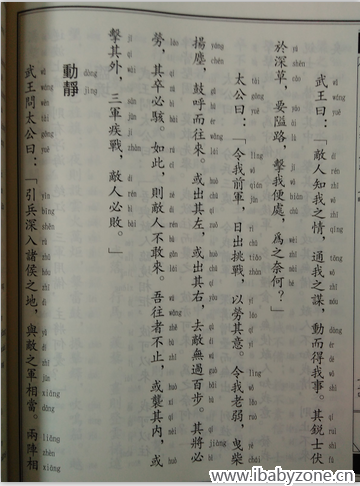 武王曰：「敵人知我之情，通我之謀，動而得我事。其銳士伏
於深草，要隘路，擊我便處，爲之奈何？」
太公曰：「令我前軍，日出挑戰，以勞其意。令我老弱，曳柴
揚塵，鼓呼而往來。或出其左，或出其右，去敵無過百步。其將必
勞，其卒必駭。如此，則敵人不敢來。吾往者不止，或襲其內，或
擊其外，三軍疾戰，敵人必敗。」
動靜
武王問太公曰：「引兵深入諸侯之地，與敵之軍相當。兩陣相
www.lbabyzone.cn